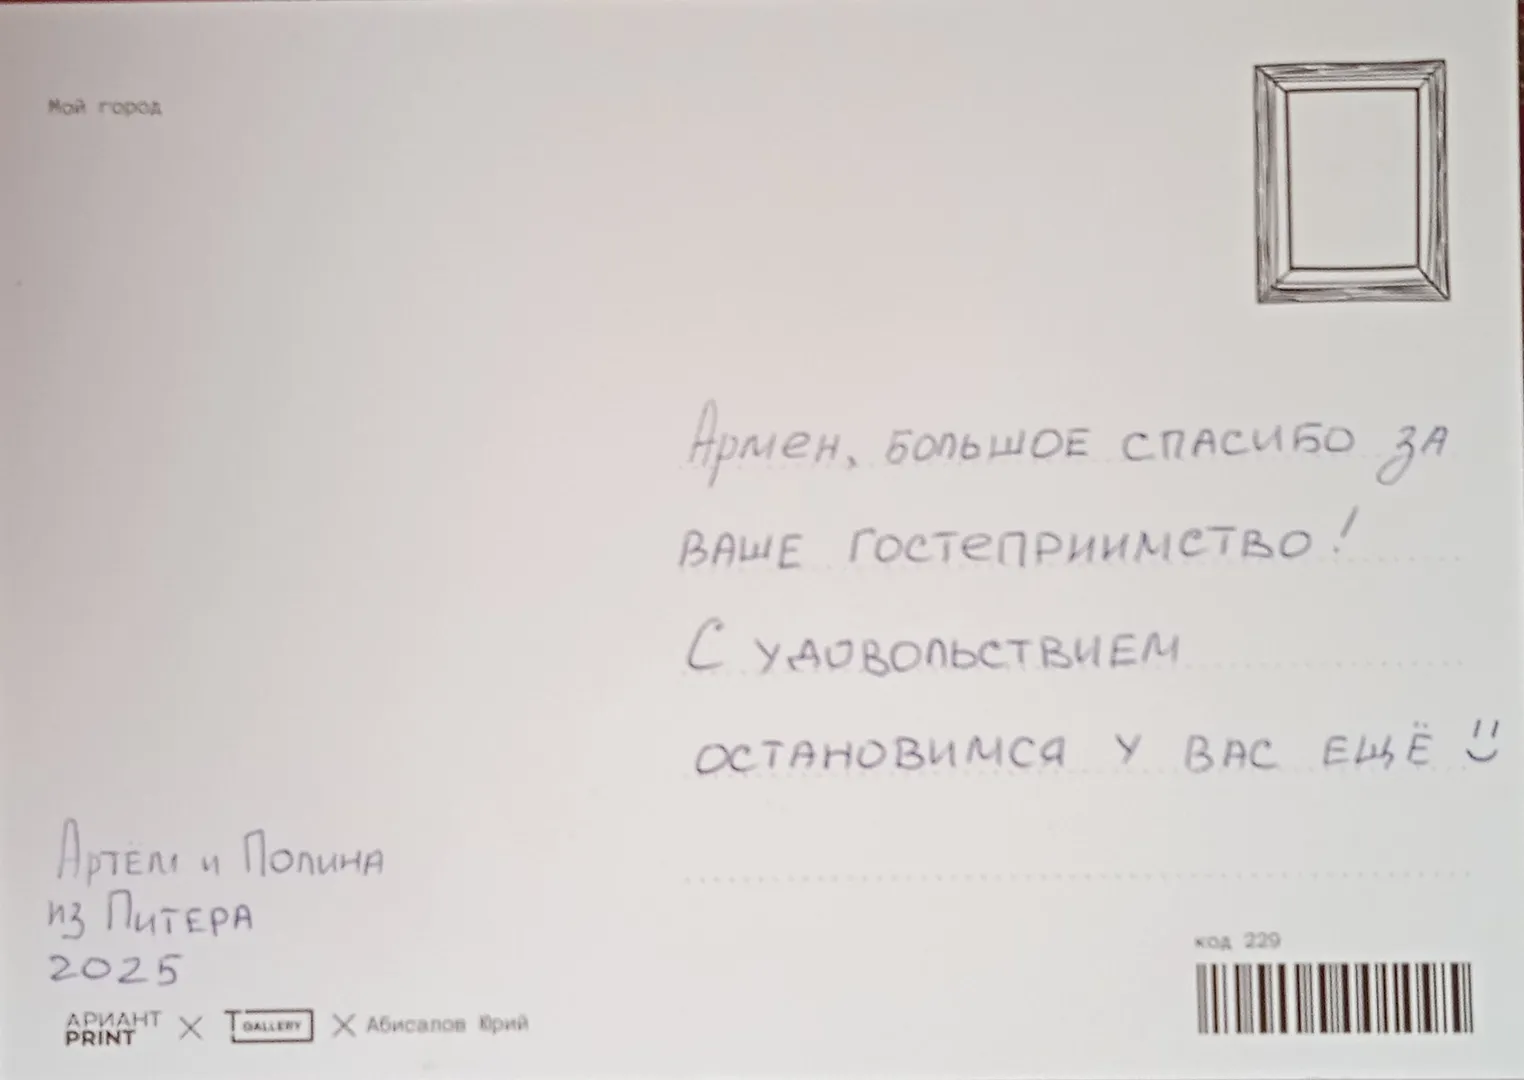 Мой город
Армен, большое спасибо за
ваше гостеприимство!
С удовольствием
остановимся у вас ещё
Артём и Полина
из Питера
2025
код 229
АРИАНТ
PRINT
T GALLERY
Абисалов Юрий